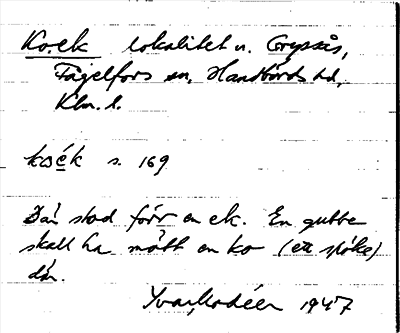 Ko.ek lokalitet u. Gryssås,
Fågelfors sn, Handbörds hd,
Klm. l.
koék s. 169
Där stod förr en ek. En gubbe
skall ha mött en ko (ett spöke)
där.
Ivar Modéer 1947